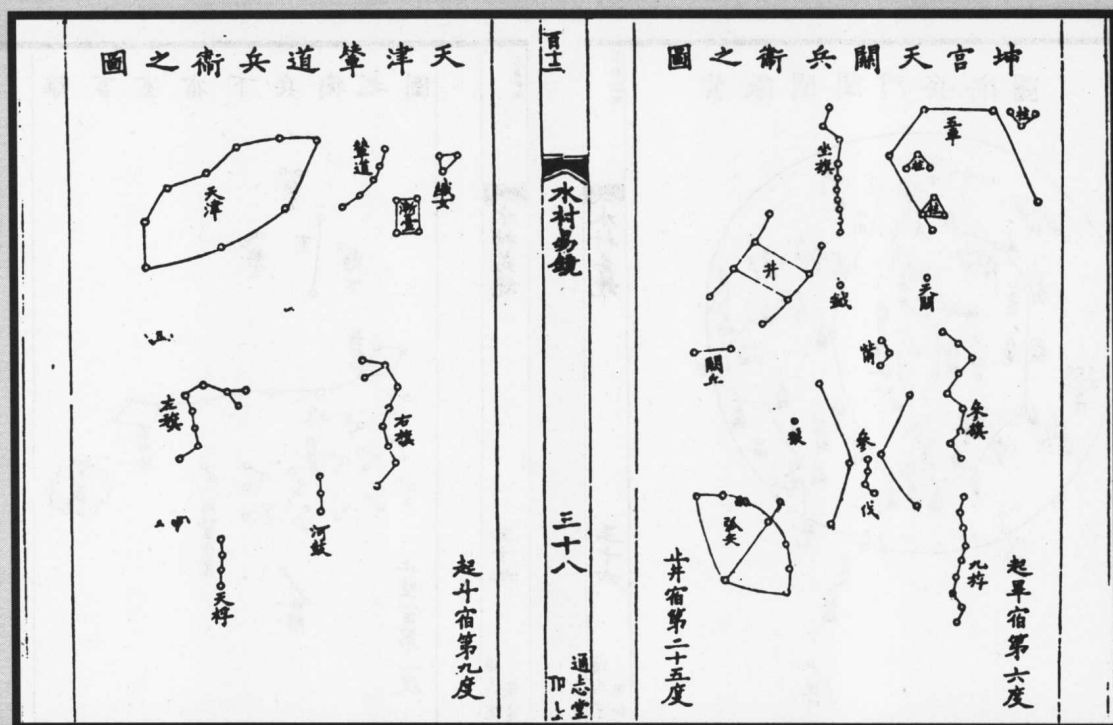 坤宮天關兵衛之圖
柱
五車
柱
柱
坐旗
井
鉞
天關
觜
參旗
關丘
狼
參
伐
弧矢
九斿
起畢宿第六度
止井宿第二十五度
百三
水村易鏡
三十八
通志堂
天津輦道兵衛之圖
織女
漸臺
輦道
天津
右旗
左旗
河鼓
天桴
起斗宿第九度